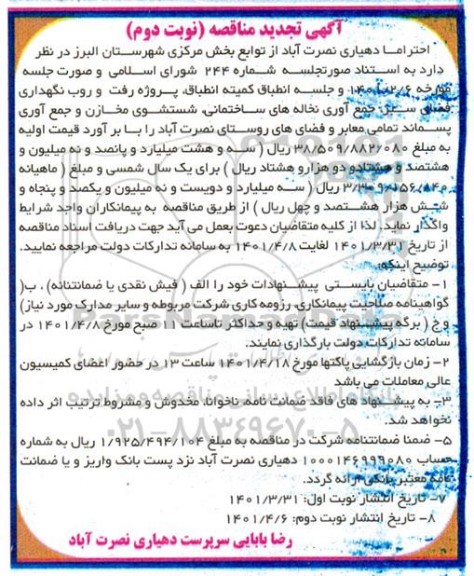 آگهی تجدید مناقصه (نوبت دوم)
احتراما دهیاری نصرت آباد از توابع بخش مرکزی شهرستان البرز در نظر
دارد به استناد صورتجلسه شماره ۲۴۴ شورای اسلامی و صورت جلسه
مورخه ۱۴۰۱/۲/۶ و جلسه انطباق کمیته انطباق، پروژه رفت و روب نگهداری
فضای سبز، جمع آوری نخاله های ساختمانی، شستشوی مخازن و جمع آوری
پسماند تمامی معابر و فضای های روستای نصرت آباد را با بر آورد قیمت اولیه
به مبلغ ۳۸/۵۰۹/۸۸۲/۰۸۰ ریال (سه و هشت میلیارد و پانصد و نه میلیون و
هشتصد و هشتادو دو هزارو هشتاد ریال) برای یک سال شمسی و مبلغ (ماهیانه
۳/۲۰۹/۱۵۶/۸۴۰ ریال (سه میلیارد و دویست و نه میلیون و یکصد و پنجاه و
شش هزار هشتصد و چهل ریال) از طریق مناقصه به پیمانکاران واجد شرایط
واگذار نماید. لذا از کلیه متقاضیان دعوت بعمل می آید جهت دریافت اسناد مناقصه
از تاریخ ۱۴۰۱/۳/۳۱ لغایت ۱۴۰۱/۴/۸ به سامانه تدارکات دولت مراجعه نمایید.
توضیح اینکه:
۱- متقاضیان بایستی پیشنهادات خود را الف (فیش نقدی یا ضمانتنانه)، ب(
گواهینامه صلاحیت پیمانکاری، رزومه کاری شرکت مربوطه و سایر مدارک مورد نیاز)
و ج (برگه پیشنهاد قیمت) تهیه و حداکثر تاساعت ۱۱ صبح مورخ ۱۴۰۱/۴/۸ در
سامانه تدارکات دولت بارگذاری نمایند.
۲- زمان بازگشایی پاکتها مورخ ۱۴۰۱/۴/۱۸ ساعت ۱۳ در حضور اعضای کمیسیون
عالی معاملات می باشد
۳- به پیشنهاد های فاقد ضمانت نامه ناخوانا، مخدوش و مشروط ترتیب اثر داده
نخواهد شد.
۵- ضمنا ضمانتنامه شرکت در مناقصه به مبلغ ۱/۹۲۵/۴۹۴/۱۰۴ ریال به شماره
حساب ۱۰۰۰۱۴۶۹۹۹۰۸۰ دهیاری نصرت آباد نزد پست بانک واریز و یا ضمانت
نامه معتبر بانکی ارائه گردد.
۷- تاریخ انتشار نوبت اول: ۱۴۰۱/۳/۳۱
۸- تاریخ انتشار نوبت دوم: ۱۴۰۱/۴/۶
رضا بابایی سرپرست دهیاری نصرت آباد
۰۲۱-۸۸۳۴۹۶۷۰-۵